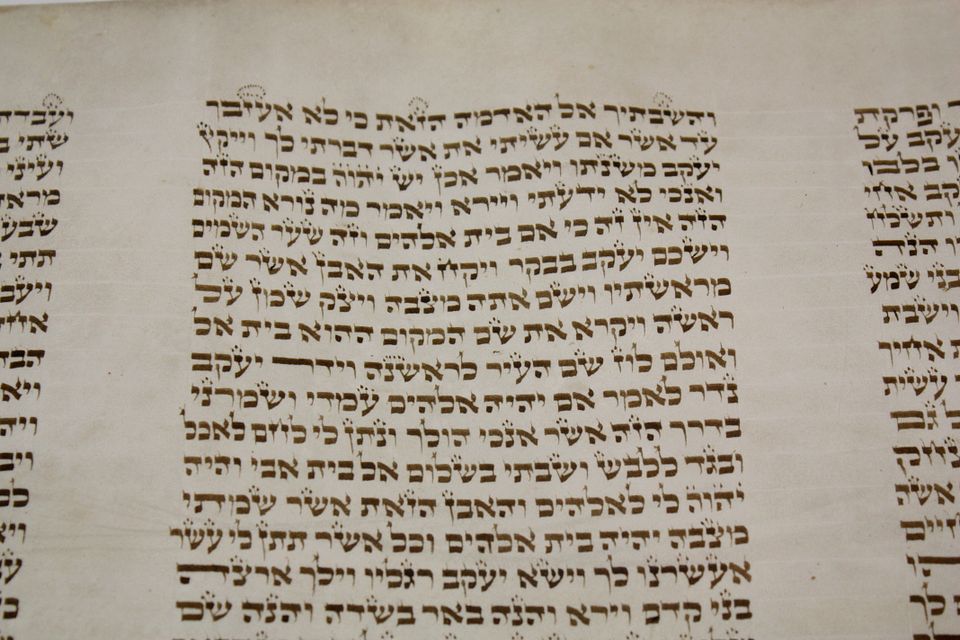 ופרקת
עקב על
בלבו
אחי
ותשלח
הנה
בני שמע
וישבת
אחיך
עשית
גם
יצחק
אשה
חיים
לך
והשבתיך אל האדמה הזאת כי לא אעזבך
עד אשר אם עשיתי את אשר דברתי לך וייקץ
יעקב משנתו ויאמר אכן יש יהוה במקום הזה
ואנכי לא ידעתי ויירא ויאמר מה נורא המקום
הזה אין זה כי אם בית אלהים וזה שער השמים
וישכם יעקב בבקר ויקח את האבן אשר שם
מראשתיו וישם אתה מצבה ויצק שמן על
ראשה ויקרא את שם המקום ההוא בית אל
ואולם לוז שם העיר לראשנה וידר יעקב
נדר לאמר אם יהיה אלהים עמדי ושמרני
בדרך הזה אשר אנכי הולך ונתן לי לחם לאכל
ובגד ללבש ושבתי בשלום אל בית אבי והיה
יהוה לי לאלהים והאבן הזאת אשר שמתי
מצבה יהיה בית אלהים וכל אשר תתן לי עשר
אעשרנו לך וישא יעקב רגליו וילך ארצה
בני קדם וירא והנה באר בשדה והנה שם
שתי
ועיני
שבע
תתי